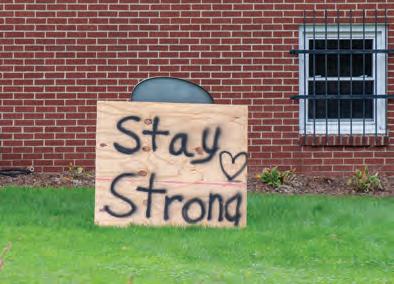 Stay
Strong